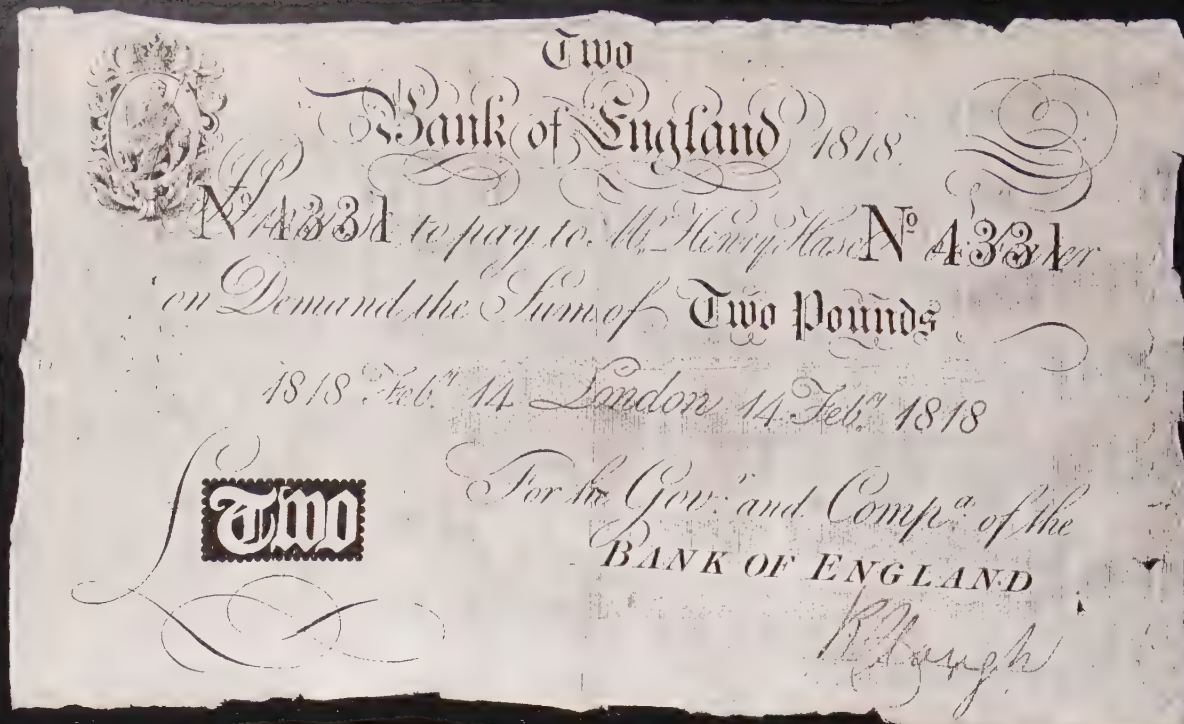 Two
Bank of England 1818
Nº 4331 to pay to Mr. Henry Hase Nº 4331
on Demand the Sum of Two Pounds
1818 Feb.ry 14 London 14 Feb.ry 1818
£ Two
For the Gov.r and Comp.a of the
BANK OF ENGLAND